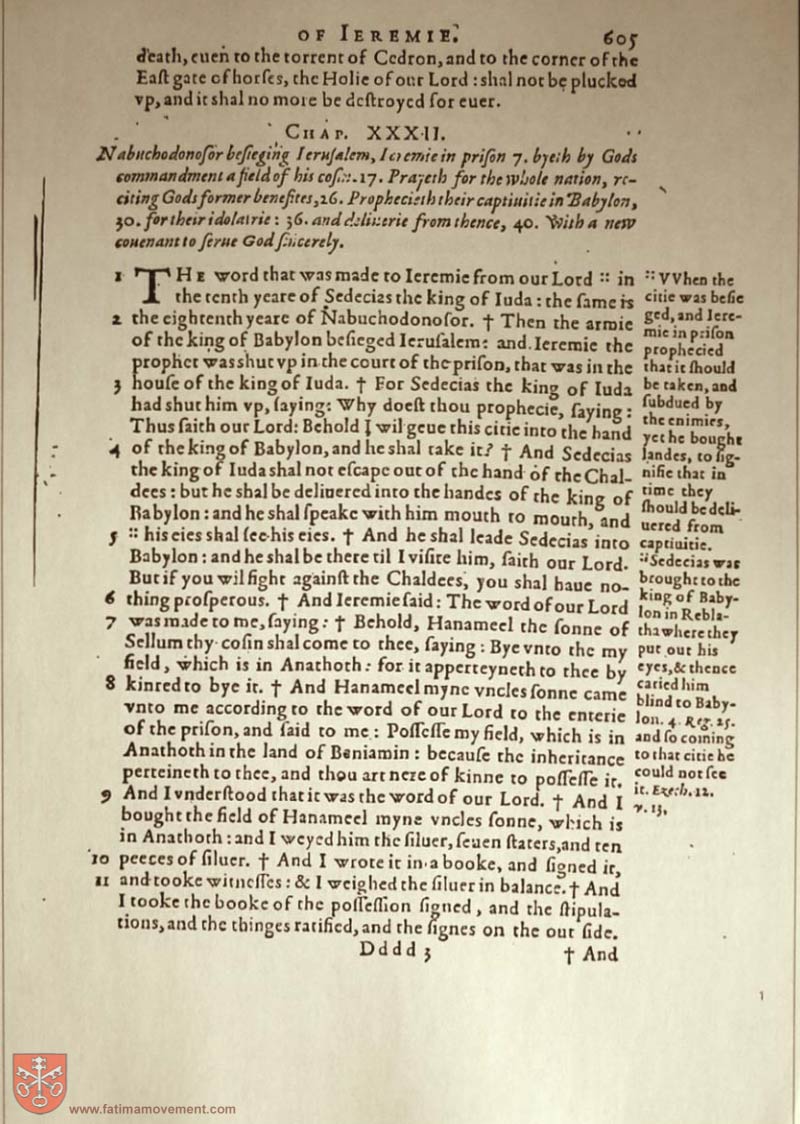 OF IEREMIE. 605
death, euen to the torrent of Cedron, and to the corner of the
Eaſt gate of horſes, the Holie of our Lord : shal not be plucked
vp, and it shal no more be deſtroyed for euer.
CHAP. XXXII.
Nabuchodonoſor beſieging Ieruſalem, Ieremie in priſon 7. byeth by Gods
commandment a field of his coſin. 17. Prayeth for the whole nation, re-
citing Gods former benefites, 26. Prophecieth their captiuitie in Babylon,
30. for their idolatrie : 36. and deliuerie from thence, 40. With a new
couenant to ſerue God ſincerely.
1 THE word that was made to Ieremie from our Lord :: in
the tenth yeare of Sedecias the king of Iuda : the ſame is
2 the eightenth yeare of Nabuchodonoſor. † Then the armie
of the king of Babylon beſieged Ieruſalem: and Ieremie the
prophet was shut vp in the court of the priſon, that was in the
3 houſe of the king of Iuda. † For Sedecias the king of Iuda
had shut him vp, ſaying: Why doeſt thou prophecie, ſaying :
Thus ſaith our Lord: Behold I wil geue this citie into the hand
4 of the king of Babylon, and he shal take it? † And Sedecias
the king of Iuda shal not eſcape out of the hand of the Chal-
dees : but he shal be deliuered into the handes of the king of
Babylon : and he shal ſpeake with him mouth to mouth, and
5 :: his eies shal ſee his eies. † And he shal leade Sedecias into
Babylon : and he shal be there til I viſite him, ſaith our Lord.
But if you wil fight againſt the Chaldees, you shal haue no-
6 thing proſperous. † And Ieremie ſaid : The word of our Lord
7 was made to me, ſaying : † Behold, Hanameel the ſonne of
Sellum thy coſin shal come to thee, ſaying : Bye vnto the my
field, which is in Anathoth : for it apperteyneth to thee by
8 kinred to bye it. † And Hanameel myne vncles ſonne came
vnto me according to the word of our Lord to the enterie
of the priſon, and ſaid to me : Poſſeſſe my field, which is in
Anathoth in the land of Beniamin : becauſe the inheritance
perteineth to thee, and thou art nere of kinne to poſſeſſe it.
9 And I vnderſtood that it was the word of our Lord. † And I
bought the field of Hanameel myne vncles ſonne, which is
in Anathoth : and I weyed him the ſiluer, ſeuen ſtaters, and ten
10 peeces of ſiluer. † And I wrote it in a booke, and ſigned it,
11 and tooke witneſſes : & I weighed the ſiluer in balance. † And
I tooke the booke of the poſſeſſion ſigned, and the ſtipula-
tions, and the thinges ratified, and the ſignes on the out ſide.
Dddd 3 † And
:: VVhen the
citie was beſie
ged, and Iere-
mie in priſon
prophecied
that it ſhould
be taken, and
ſubdued by
the enimies,
yet he bought
landes, to ſig-
nifie that in
time they
ſhould be deli-
uered from
captiuitie.
:: Sedecias was
brought to the
king of Baby-
lon in Rebla-
tha where they
put out his
eyes, & thence
caried him
blind to Baby-
lon. 4. Reg. 25.
and ſo coming
to that citie he
could not ſee
it. Ezech. 12.
v. 13.
1
www.fatimamovement.com